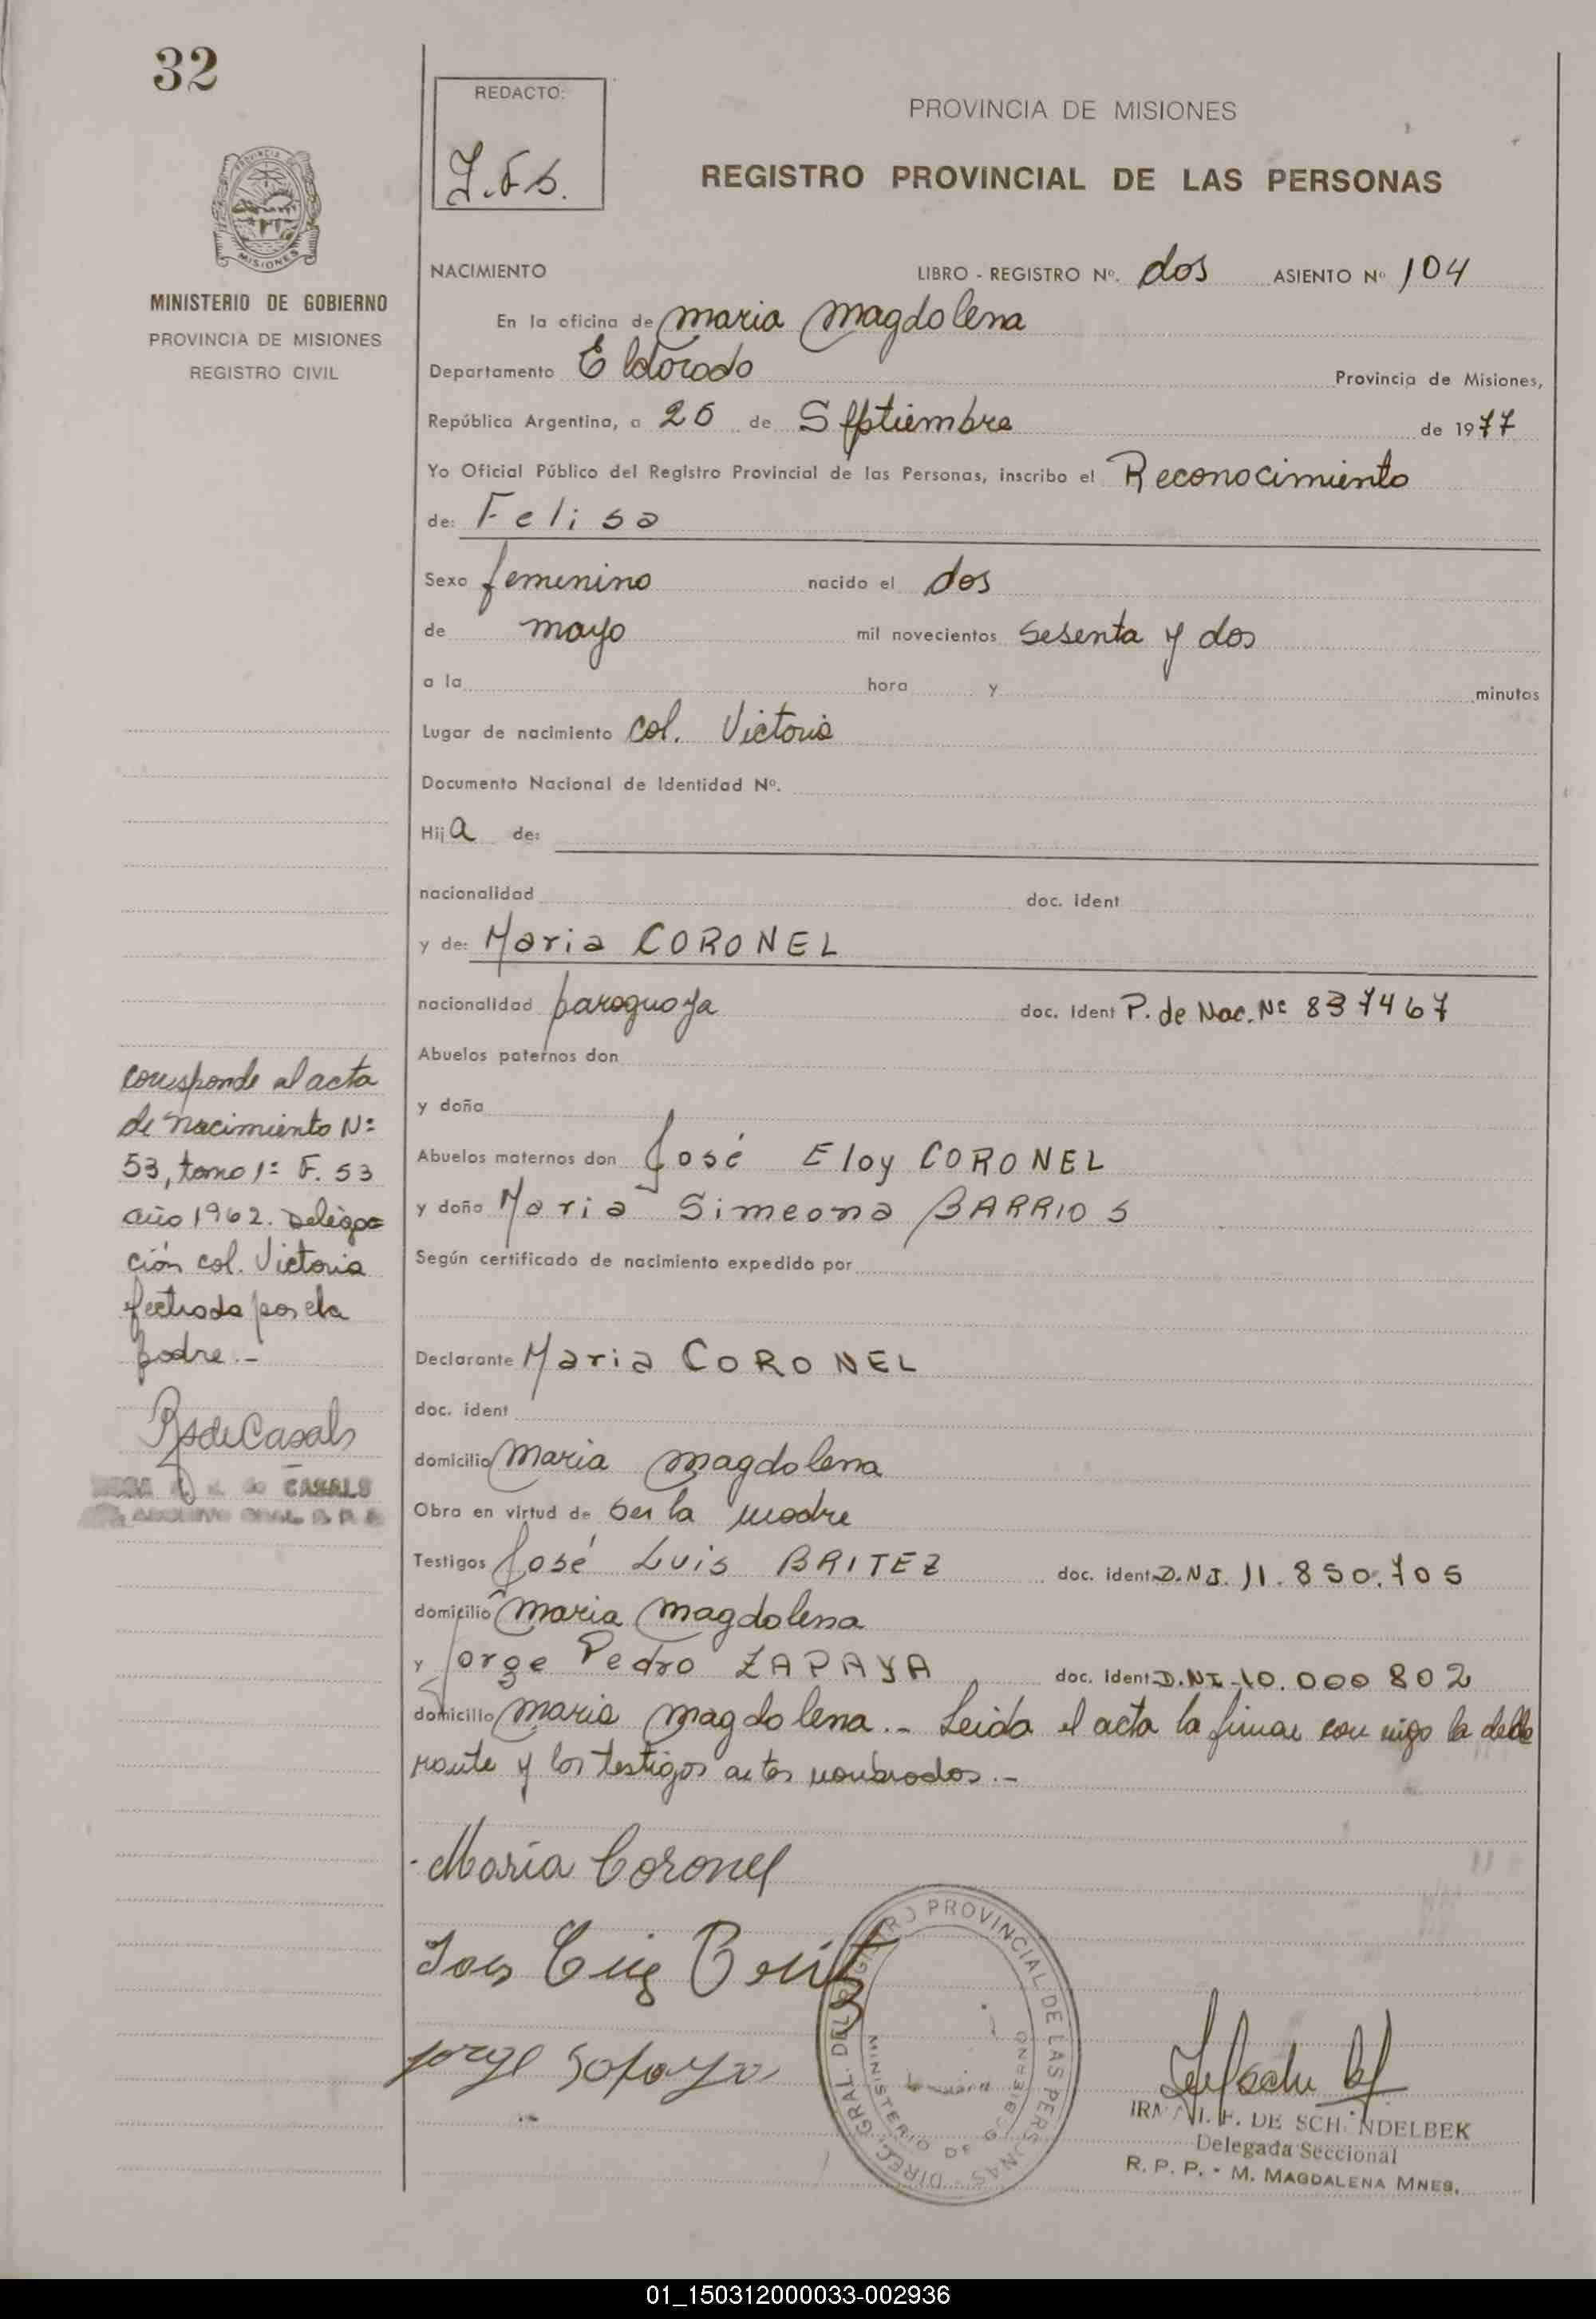 32
REDACTO:
PROVINCIA DE MISIONES
REGISTRO PROVINCIAL DE LAS PERSONAS
MINISTERIO DE GOBIERNO
PROVINCIA DE MISIONES
REGISTRO CIVIL
NACIMIENTO LIBRO - REGISTRO Nº. dos ASIENTO Nº 104
En la oficina de Maria Magdalena
Departamento Eldorado Provincia de Misiones,
República Argentina, a 26 de Septiembre de 1977
Yo Oficial Público del Registro Provincial de las Personas, inscribo el Reconocimiento
de: Felisa
Sexo femenino nacido el dos
de mayo mil novecientos sesenta y dos
a la hora y minutos
Lugar de nacimiento Col. Victoria
Documento Nacional de Identidad Nº.
Hija de:
nacionalidad doc. ident
y de: Maria CORONEL
nacionalidad paraguaya doc. ident P. de Nac. Nº 837467
Abuelos paternos don
y doña
Abuelos maternos don José Eloy CORONEL
y doña Maria Simeona BARRIOS
Según certificado de nacimiento expedido por
Declarante Maria CORONEL
doc. ident
domicilio Maria Magdalena
Obra en virtud de ser la madre
Testigos José Luis BRITEZ doc. ident D.N.I. 11.850.705
domicilio Maria Magdalena
y Jorge Pedro ZAPAYA doc. ident D.N.I. 10.000 802
domicilio Maria Magdalena.- Leida el acta la firman con migo la decla
rante y los testigos antes nombrados.-
corresponde al acta
de nacimiento Nº
53, tomo 1º F. 53
año 1962. Delega
ción col. Victoria
padre.-
de Casals
de CASALS
Maria Coronel
DIREC. GRAL. DEL REGISTRO PROVINCIAL DE LAS PERSONAS
MINISTERIO DE GOBIERNO
DE SCH NDELBEK
Delegada Seccional
R. P. P. - M. MAGDALENA MNES.
01_150312000033-002936